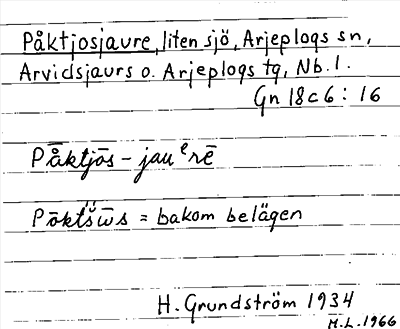 Påktjosjaure, liten sjö, Arjeplogs sn,
Arvidsjaurs o. Arjeplogs tg, Nb. l.
Gn 18c6 : 16
På̄ktjōs - jauᵉrē
Pōktš́ūs = bakom belägen
H. Grundström 1934
H.L. 1966